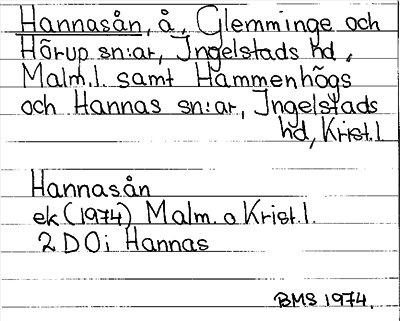 Hannasån, å, Glemminge och
Hõrup sn:ar, Ingelstads hd,
Malm.l. samt Hammenhõgs
och Hannas sn:ar, Ingelstads
hd, Krist.l
Hannasån
ek (1974) Malm. o Krist.l.
2 D O i Hannas
BMS 1974.